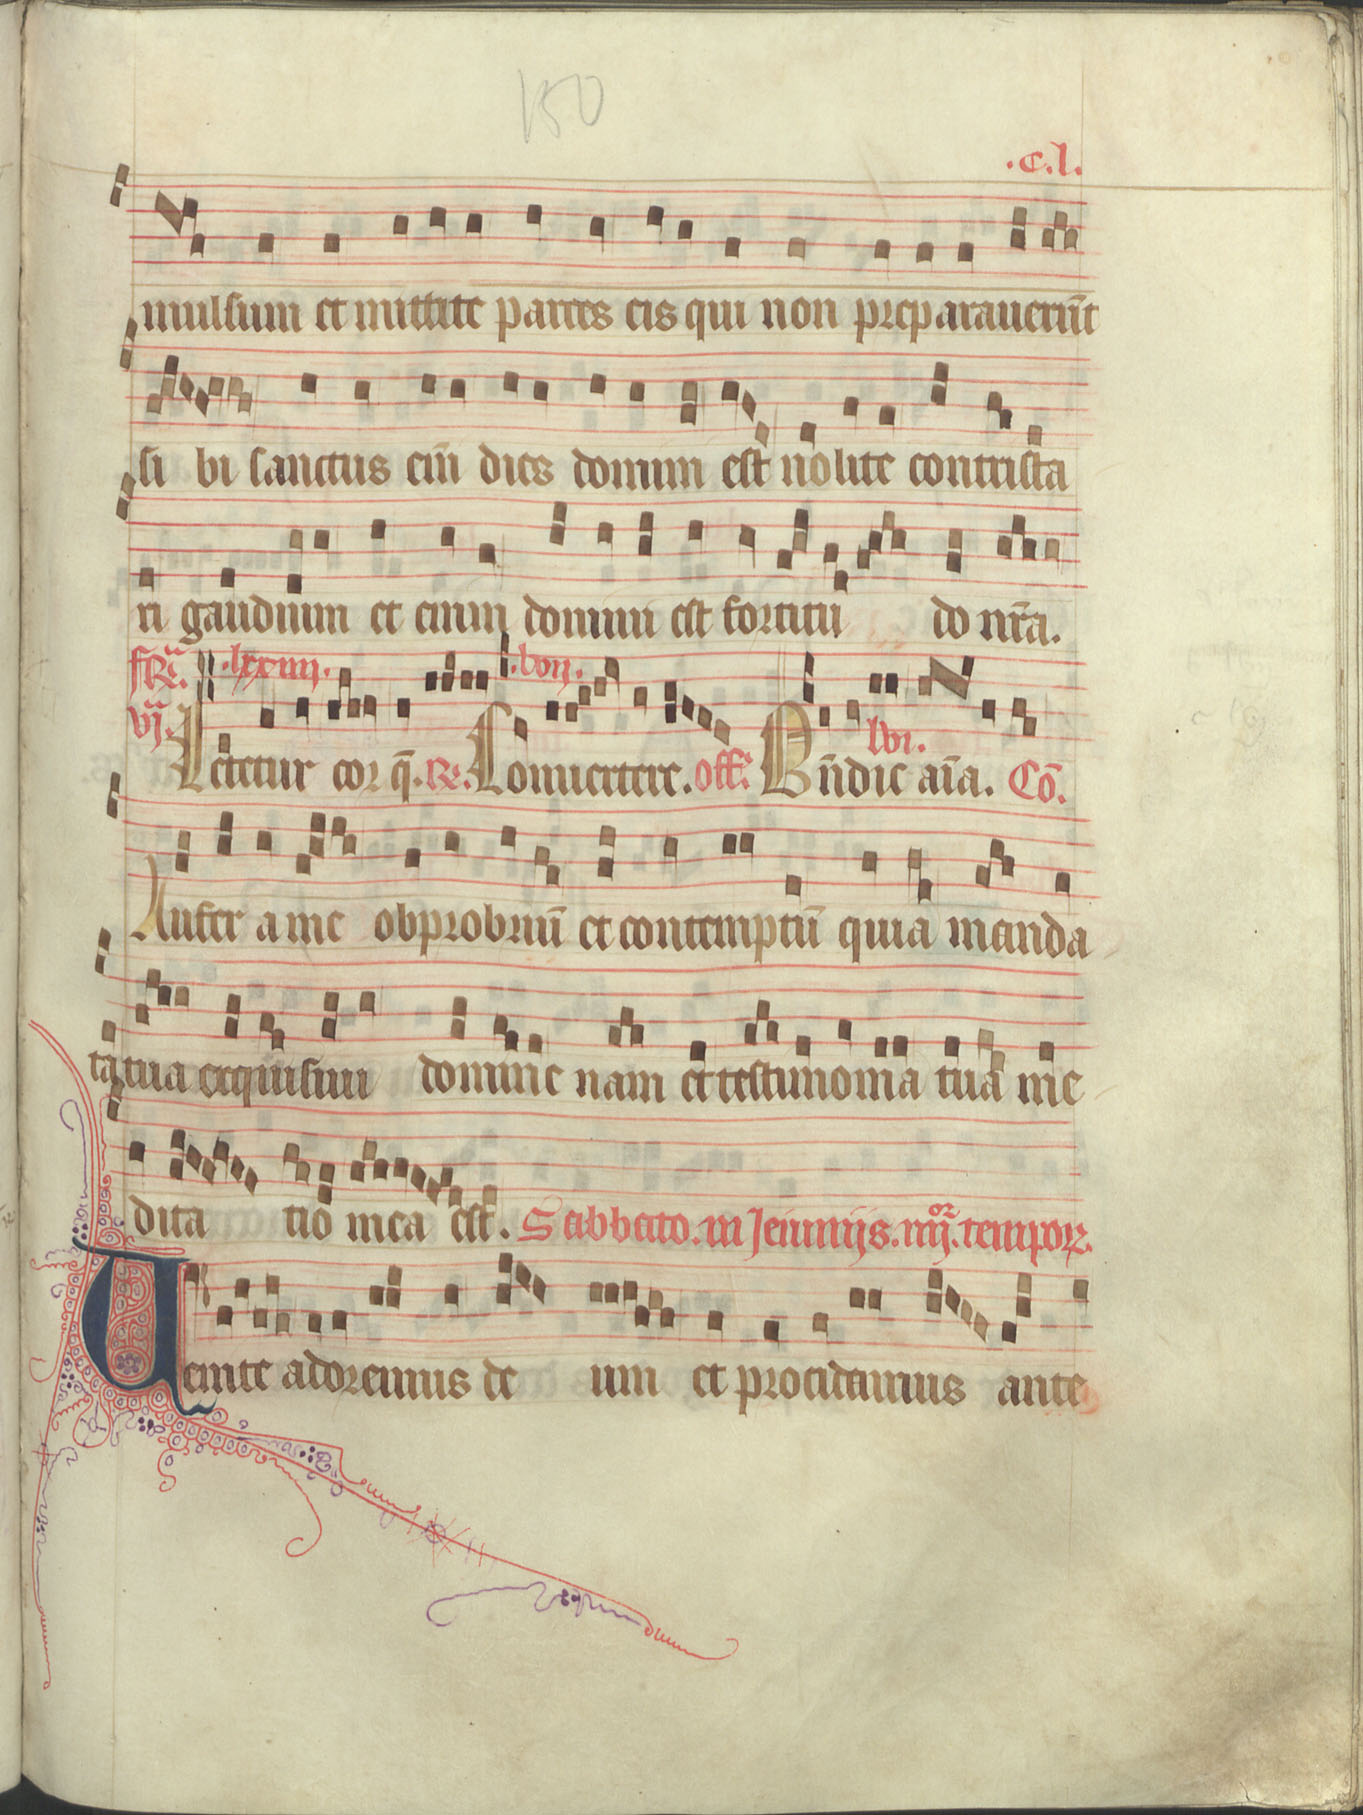 150
.c.l.
mulsum et mittite partes eis qui non preparauerūt
si bi sanctus eiñ dies domini est nolite contrista
ri gaudium et enim domini est fortitu do nr̄a.
fR̃a .lxxiiij. .lvij.
vj.a lvi.
Letetur cor q̄. R̃. Conuertere. Off. Bñdic aīa. Cō.
Aufer a me obprobriū et contemptū quia manda
ta tua exquisiui domine nam et testimonia tua me
dita tio mea est. Sabbato. in Jeiunijs. iiijor. tempor.
Uenite adoremus de um et procidamus ante